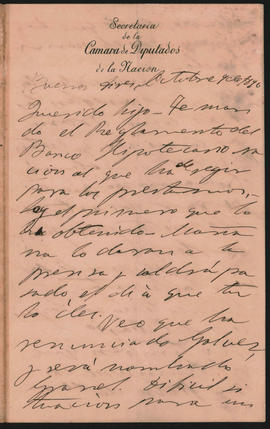 Secretaria
de la
Camara de Diputados
de la Nacion
Buenos Aires, Octubre 9 de 1890
Querido hijo - Te man
do el Reglamento del
Banco Hipotecario na
cional que ha de regir
para los prestamos,
soy el primero que lo
ha obtenido. Maña
na lo daran a la
prensa y saldrá pa
sado el dia que tu
lo des.
Veo que ha
renunciado Galvez,
y será nombrado
Granel. Dificil si
tuacion para un